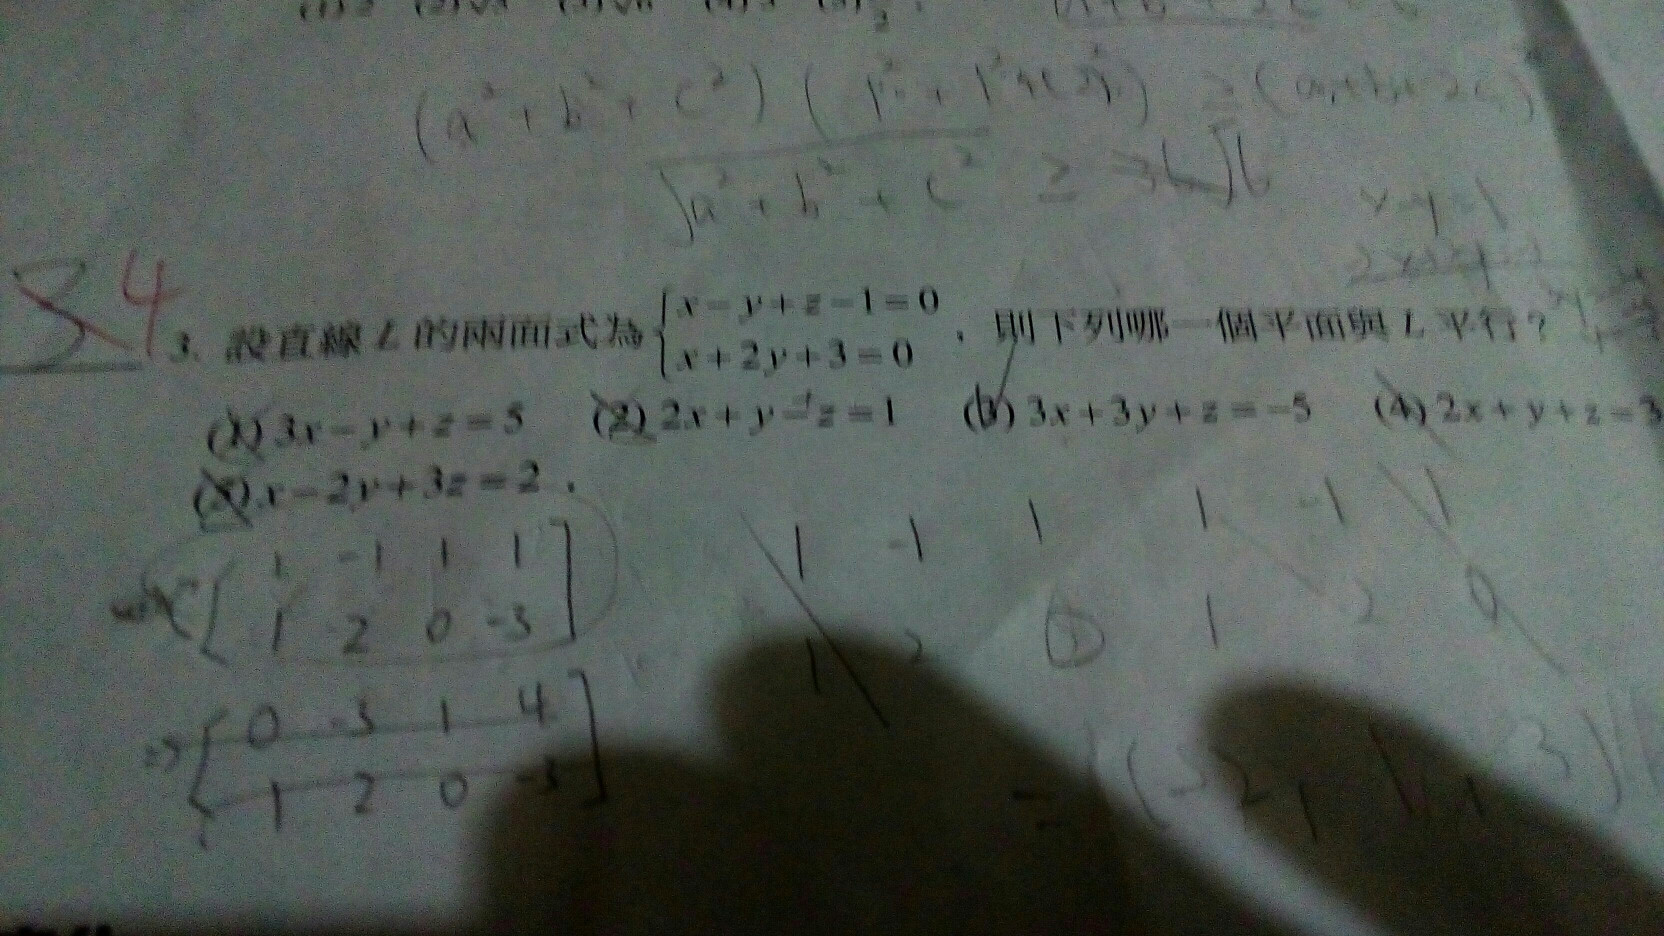 (a² + b² + c²) (1² + 1² + (2)²) ≥ (a+b+2c)²
√a² + b² + c² ≥
x-y=1
34
3. 設直線 L 的兩面式為 { x-y+z-1=0
x+2y+3=0 , 則下列哪一個平面與 L 平行?
(1) 3x-y+z=5 (2) 2x+y-z=1 (3) 3x+3y+z=-5 (4) 2x+y+z=3
(5) x-2y+3z=2 .
[ 1 -1 1 1
1 2 0 -3 ]
1 -1 1 1 -1 1
1 2 0 1 2 0
=> [ 0 -3 1 4
1 2 0 -3 ]
= (-2, 1, 3)